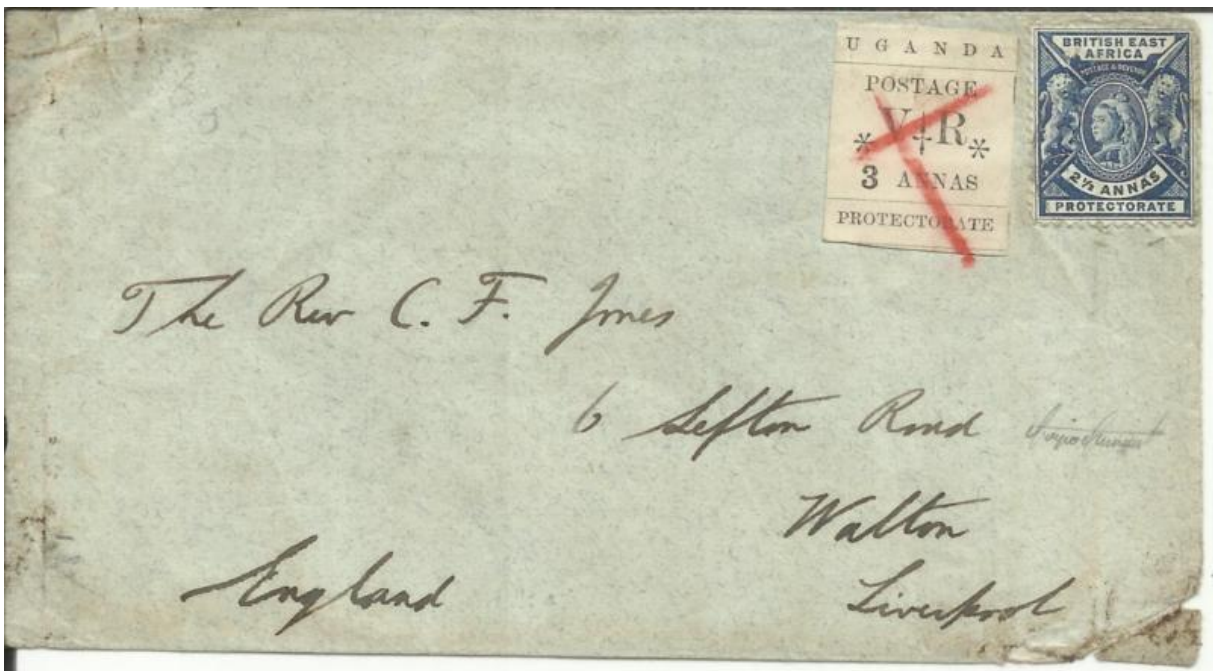 UGANDA
POSTAGE
* V‡R *
3 ANNAS
PROTECTORATE
BRITISH EAST
AFRICA
POSTAGE & REVENUE
2½ ANNAS
PROTECTORATE
The Rev C. F. Jones
6 Sefton Road
Walton
Liverpool
England